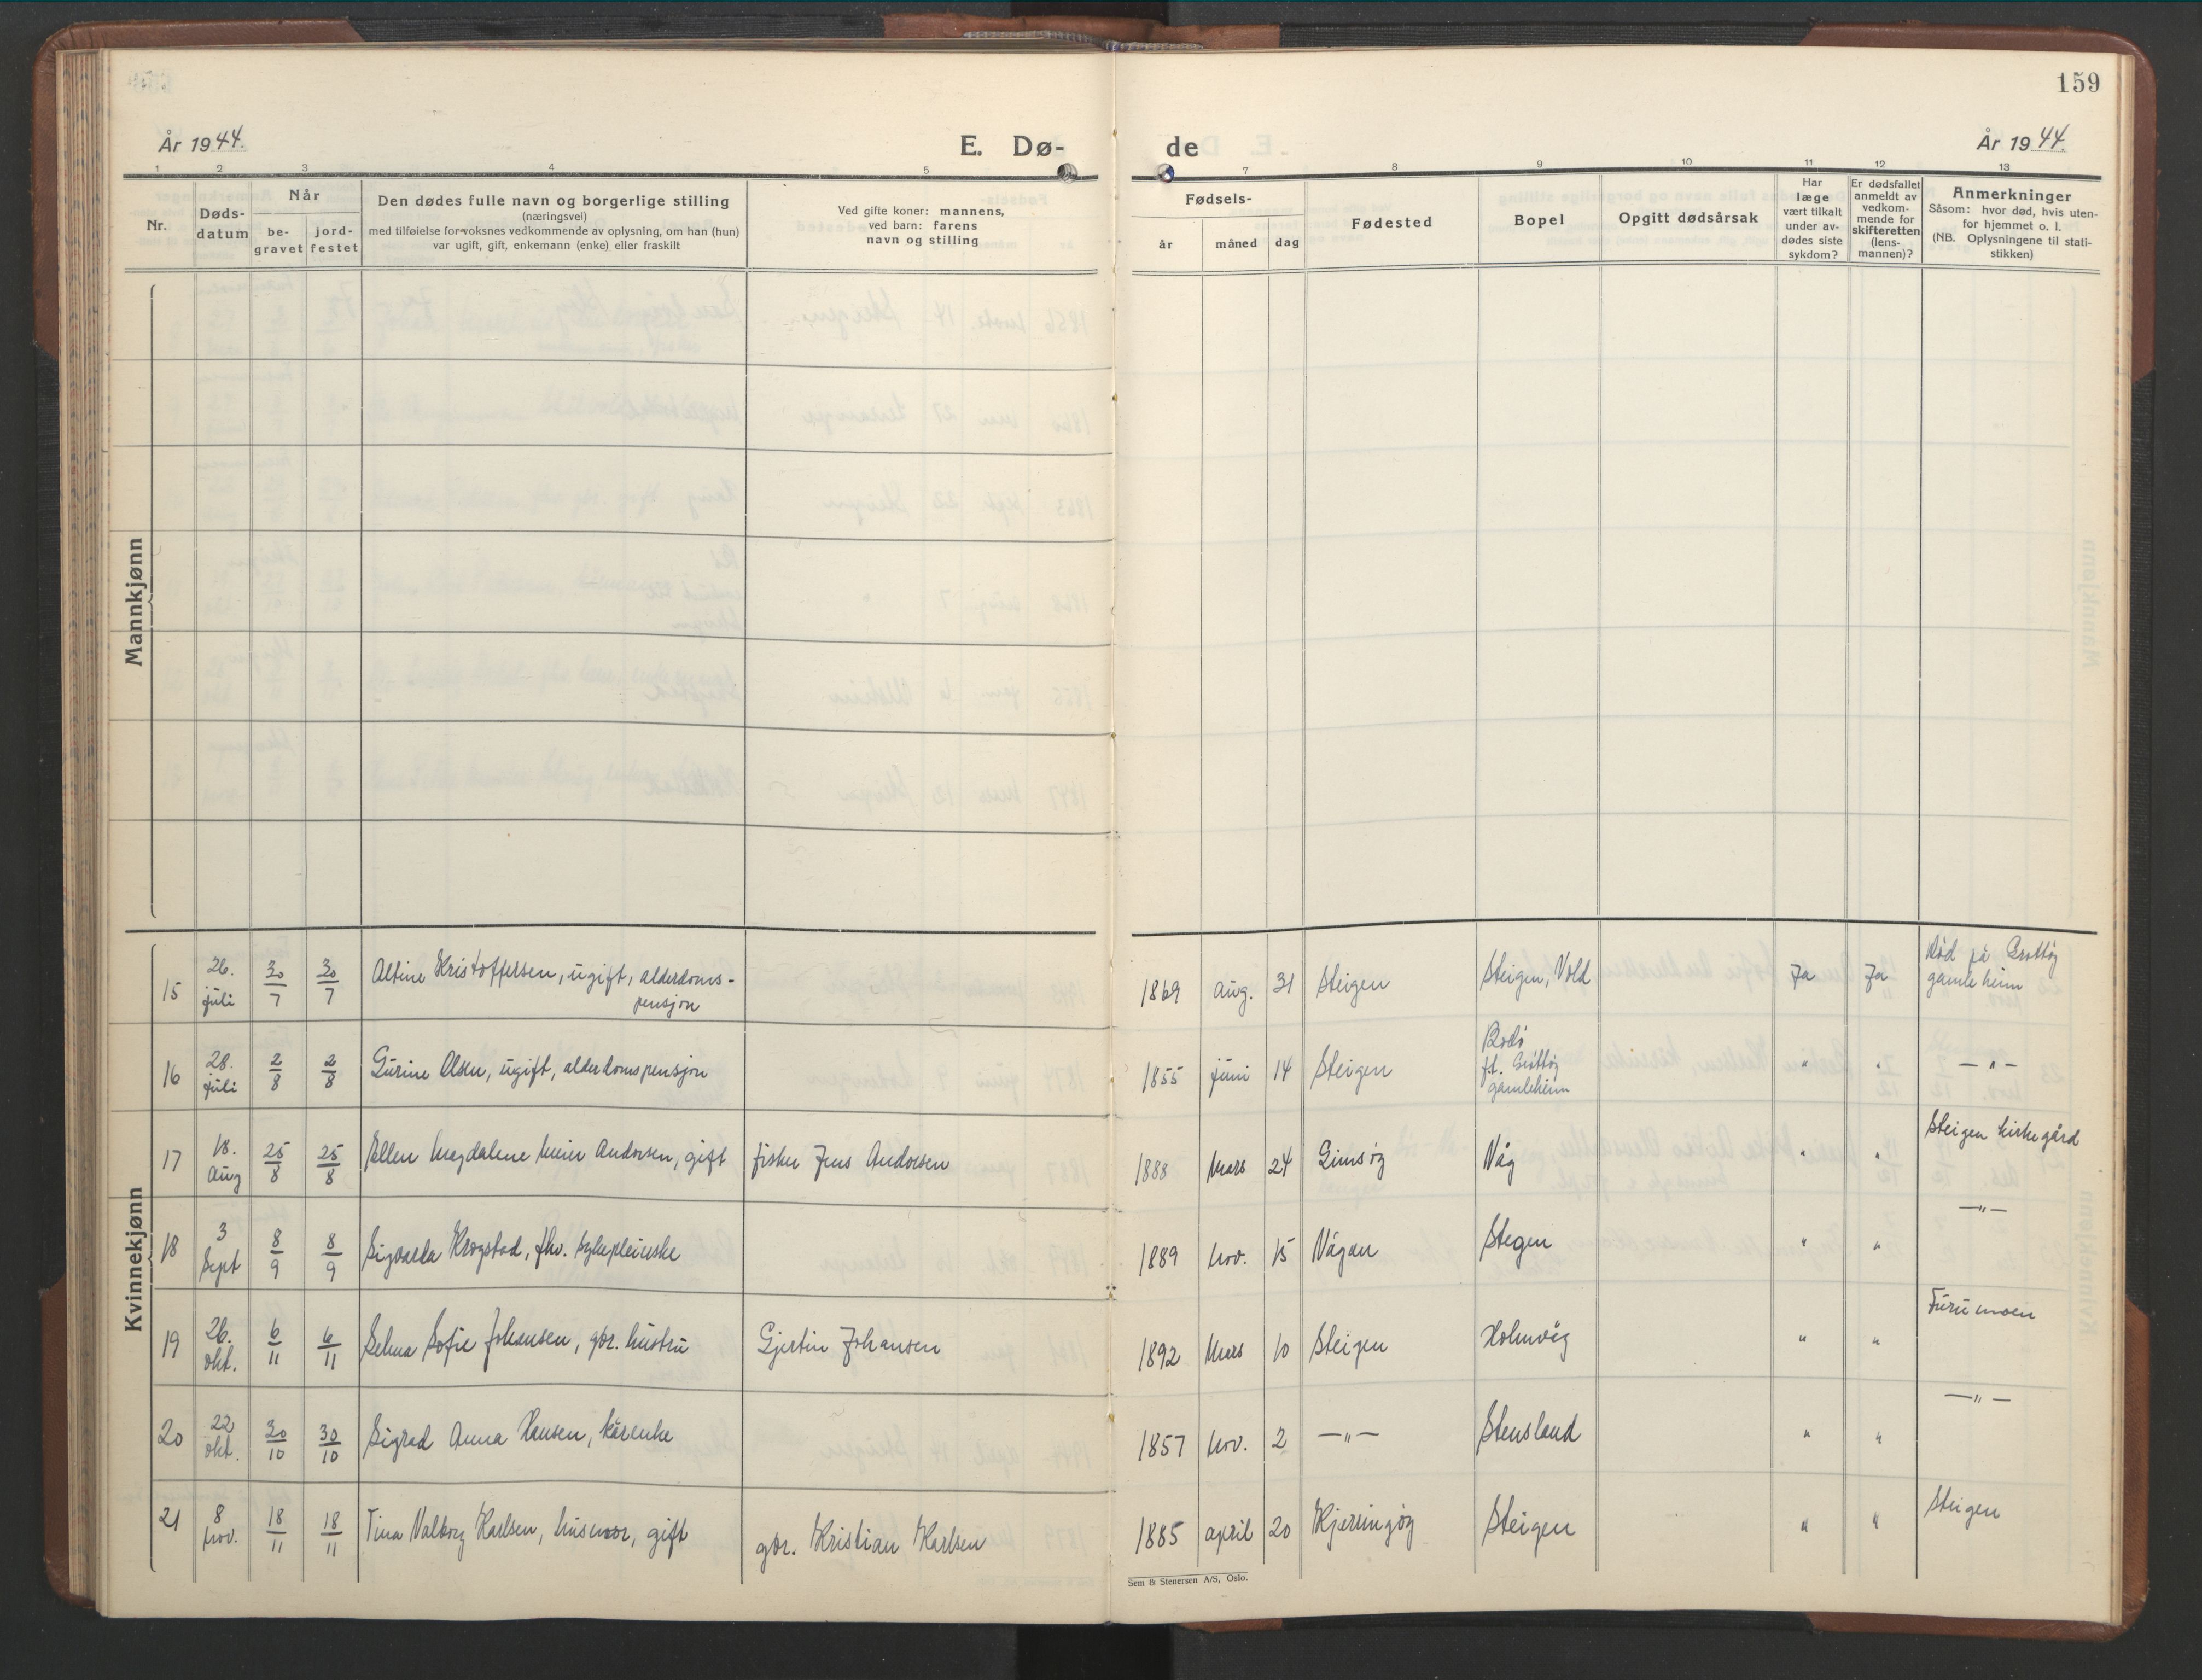 159
År 1944.
E. Dø-
de
År 1944.
1 2 3 4 5 7 8 9 10 11 12 13
Nr.
Døds-
datum
Når
be-
gravet
jord-
festet
Den dødes fulle navn og borgerlige stilling
(næringsvei)
med tilføielse for voksnes vedkommende av oplysning, om han (hun)
var ugift, gift, enkemann (enke) eller fraskilt
Ved gifte koner: mannens,
ved barn: farens
navn og stilling
Fødsels-
år
måned
dag
Fødested
Bopel
Opgitt dødsårsak
Har
læge
vært tilkalt
under av-
dødes siste
sykdom?
Er dødsfallet
anmeldt av
vedkom-
mende for
skifteretten
(lens-
mannen)?
Anmerkninger
Såsom: hvor død, hvis uten-
for hjemmet o. l.
(NB. Oplysningene til stati-
stikken)
Mannkjønn
Kvinnekjønn
15 26. juli 30/7 30/7 Altine Kristoffersen, ugift, alderdoms-
pensjon
1869 Aug. 31 Steigen Steigen, Vold Ja Ja Død på Grøttøy
gamleheim
16 28. juli 2/8 2/8 Gurine Olsen, ugift, alderdomspensjon
1855 juni 14 Steigen Bodø
f.t. Grøttøy
gamleheim " " — " —
17 18. Aug 25/8 25/8 Ellen Magdalene Meier Andorsen, gift fisker Jens Andorsen
1888 Mars 24 Gimsøy Våg " " Steigen kirkegård
18 3 Sept 8/9 8/9 Sigvarda Krogstad, fhv. sykepleierske
1889 Nov. 15 Vågan Stegen " " — " —
19 26. okt. 6/11 6/11 Selma Sofie Johansen, gbr. hustru Gjertin Johansen
1892 Mars 10 Steigen Holmvåg " " Furumoen
20 22 okt. 30/10 30/10 Sigrad Anna Hansen, kårenke
1857 Nov. 2 — " — Stensland " " — " —
21 8 Nov. 18/11 18/11 Tina Valborg Karlsen, husmor, gift gbr. Kristian Karlsen
1885 april 20 Kjerringøy Steigen " " Steigen
Sem & Stenersen A/S, Oslo.